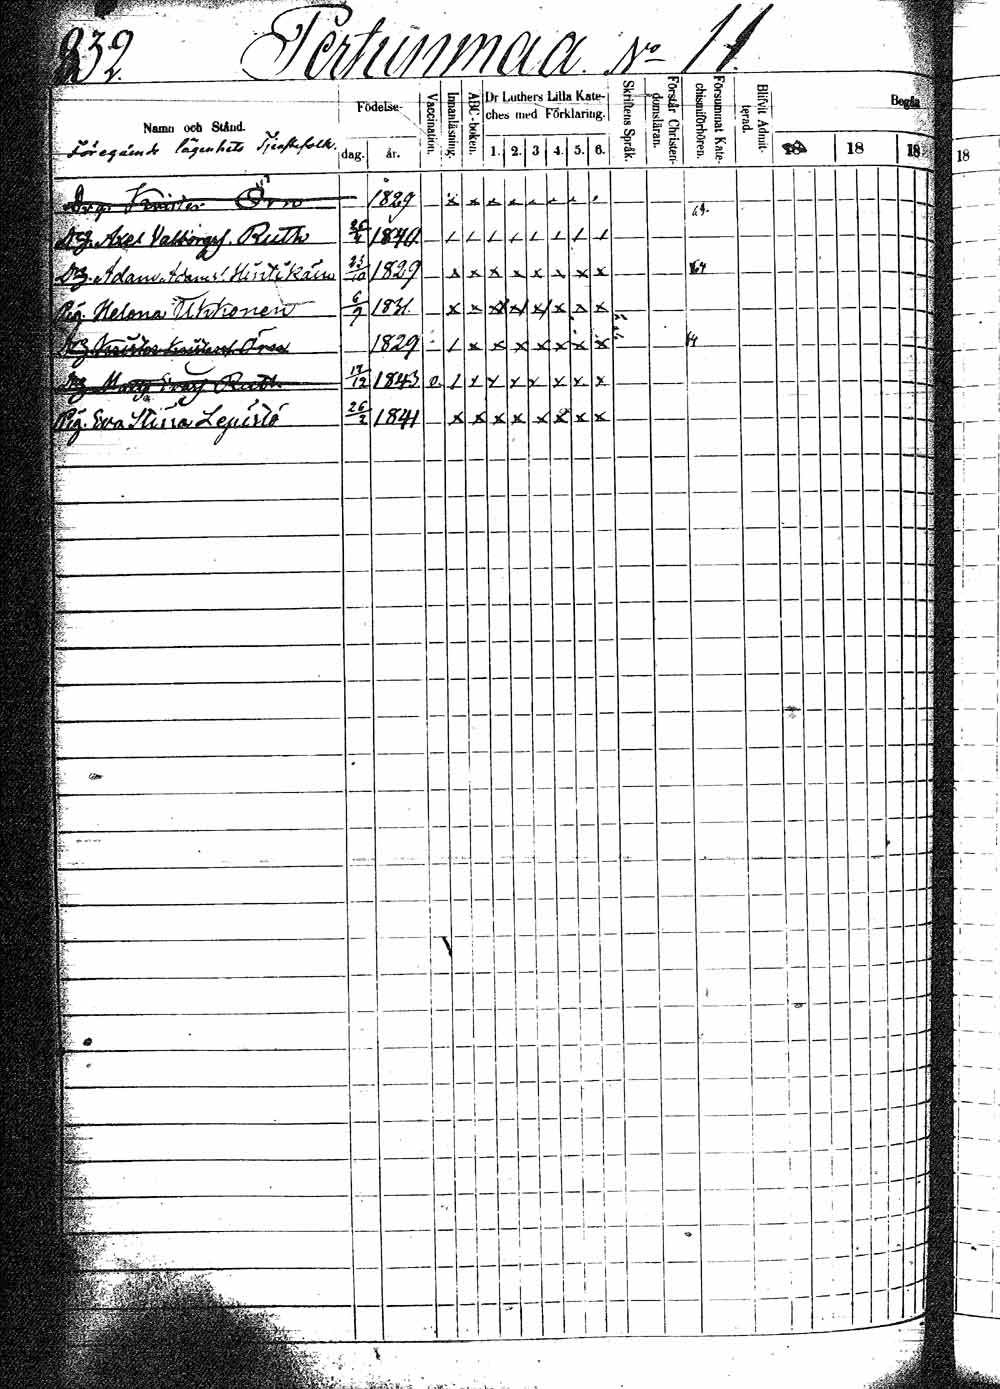 232.
Pertunmaa. No 11.
Namn och Stånd.
Föregående lägenhets Tjenstefolk.
Födelse-
dag.
år.
Vaccination.
Innanläsning.
ABC-boken.
Dr Luthers Lilla Kate-
ches med Förklaring.
1. 2. 3 4. 5. 6.
Skriftens Språk.
Förstår Christen-
domsläran.
Försummat Kate-
chismiförhören.
Blifvit Admit-
terad.
Begås
18 18 18 18
Drg. Krister Örn 1829 x x x
Drg. Axel Ruth 1840
Drg. Adam Adams. Hintikain 23/10 1829 x x x x x x x x 64
Pig. Helena Ukkonen 6/7 1831. x x x x x x x x
Drg 1829 x x x x x x x 64
Drg Ruth 17/12 1843
Pig. Eva Stina Lepistö 26/2 1841 x x x x x x x x